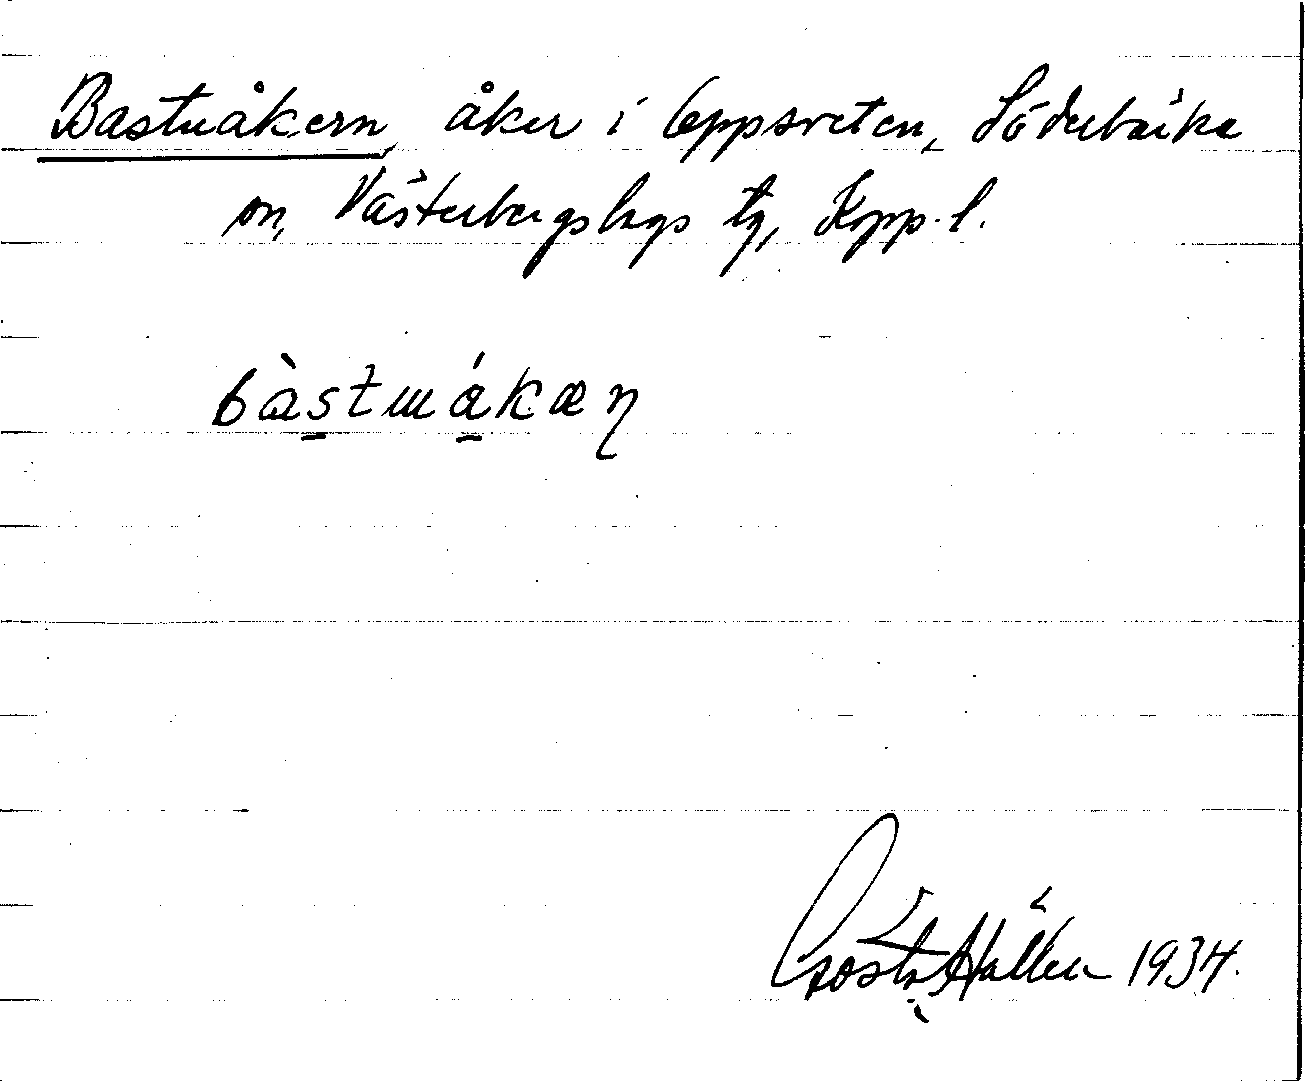 Bastuåkern, åker i Oppsveten, Söderbärke
sn, Västerbergslags tg, Kopp. l.
bàstuákæn
Gösta Hallén 1934.